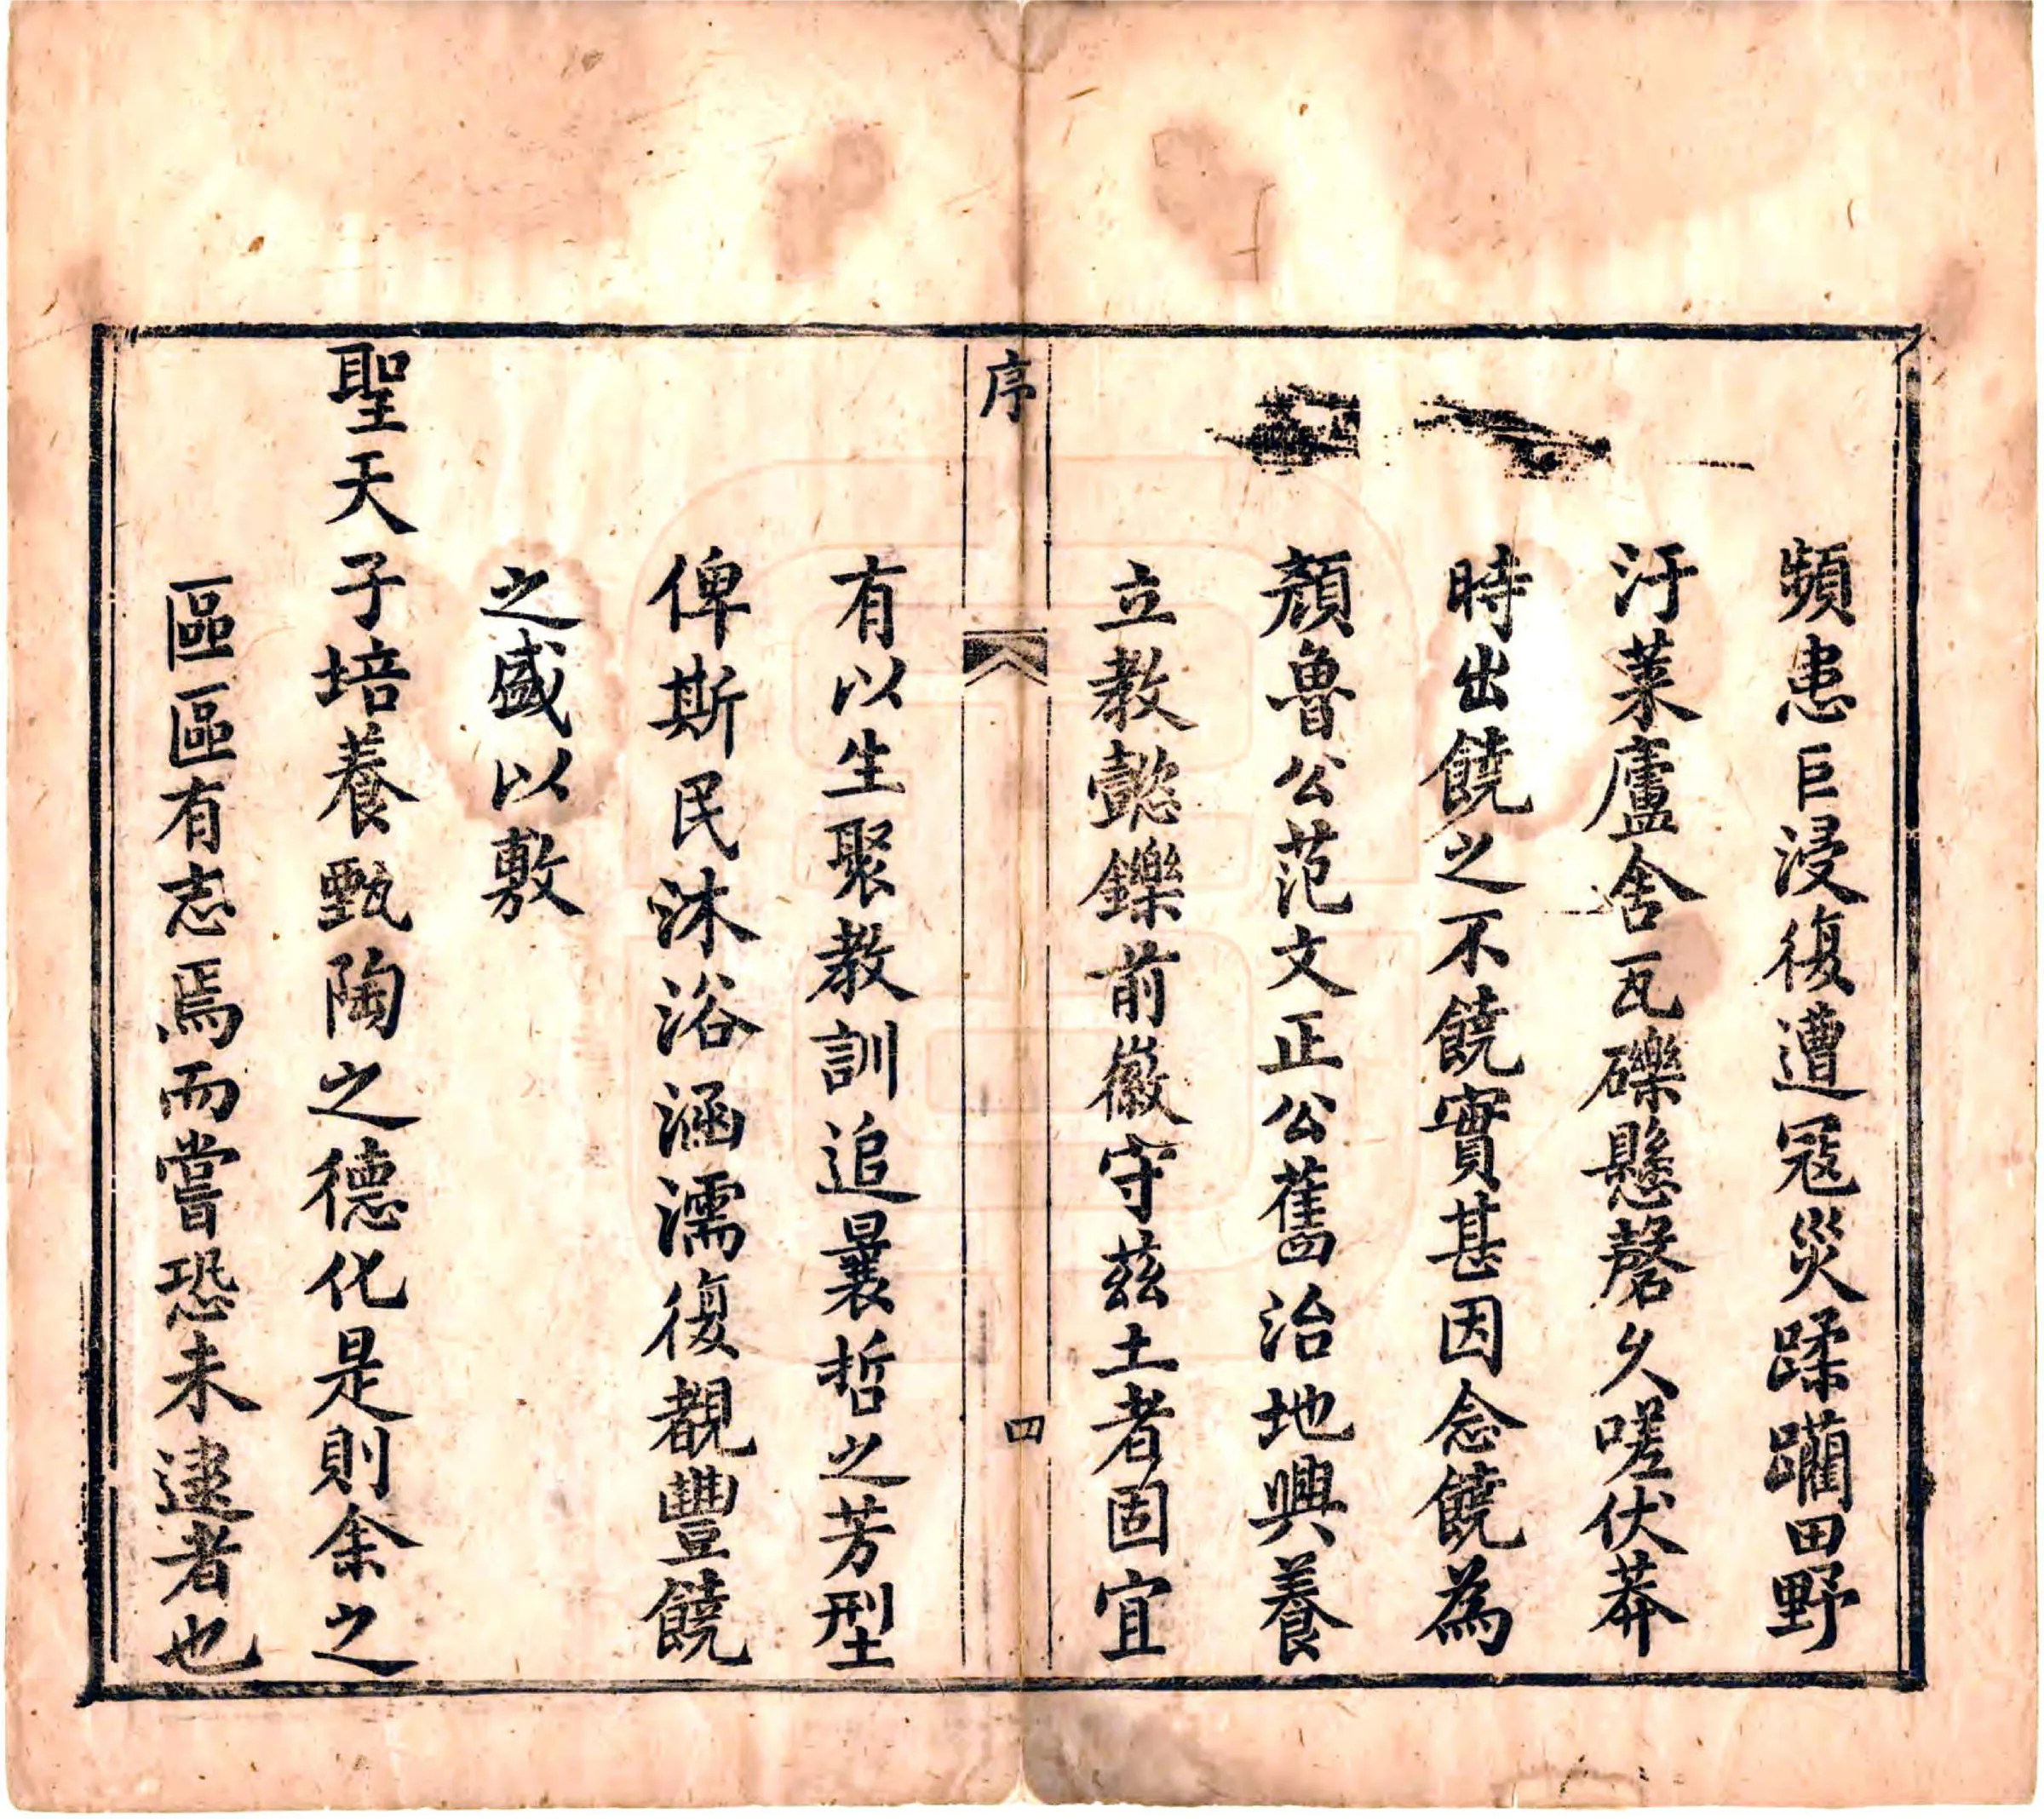 頻患巨浸復遭寇災蹂躪田野
汙萊廬舍瓦礫懸磬久嗟伏莽
時出饒之不饒實甚因念饒為
顏魯公范文正公舊治地興養
立教懿鑠前徽守茲土者固宜
序
四
有以生聚教訓追曩哲之芳型
俾斯民沐浴涵濡復覩豐饒
之盛以敷
聖天子培養甄陶之德化是則余之
區區有志焉而嘗恐未逮者也